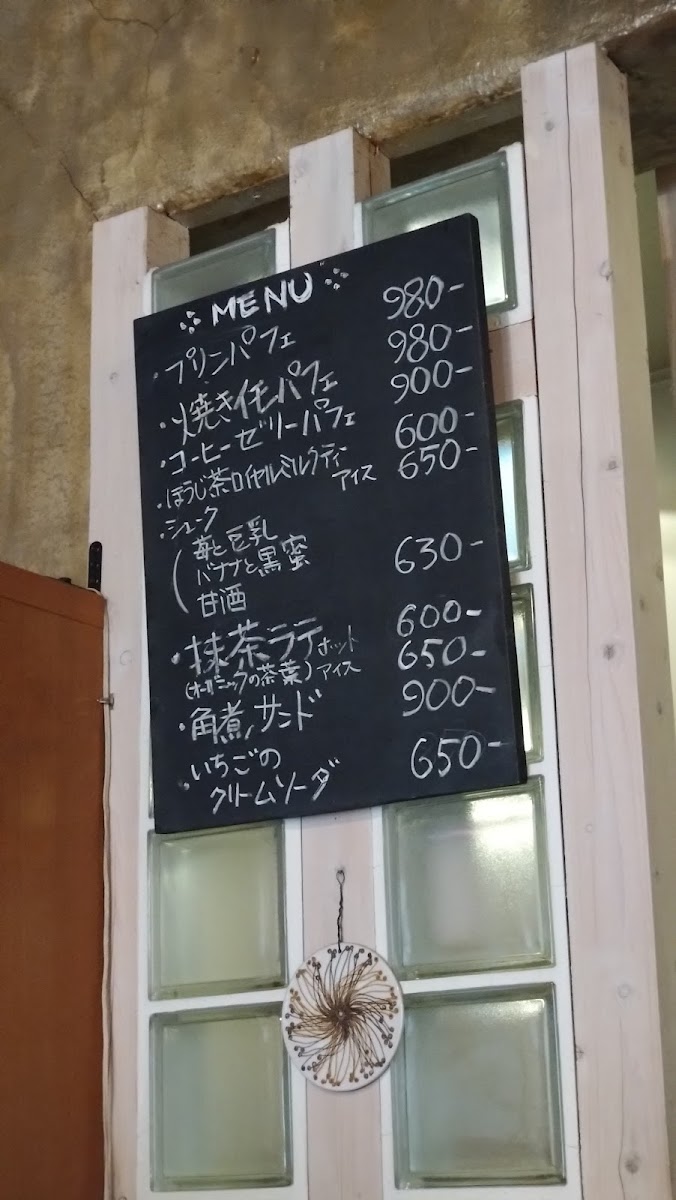 MENU
・プリンパフェ 980-
・焼き芋パフェ 980-
・コーヒーゼリーパフェ 900-
・ほうじ茶ロイヤルミルクティー 600-
アイス 650-
・シェーク
苺と豆乳
バナナと黒蜜 630-
甘酒
・抹茶ラテ ホット 600-
(オーガニックの茶葉) アイス 650-
・角煮サンド 900-
・いちごの
クリームソーダ 650-